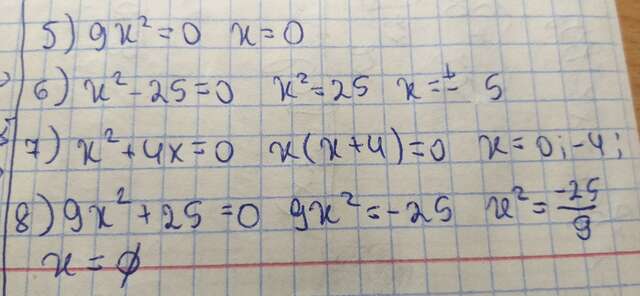 5) 9x² = 0 x = 0
6) x² - 25 = 0 x² = 25 x = ± 5
7) x² + 4x = 0 x(x + 4) = 0 x = 0; -4;
8) 9x² + 25 = 0 9x² = -25 x² = -25/9
x = ∅